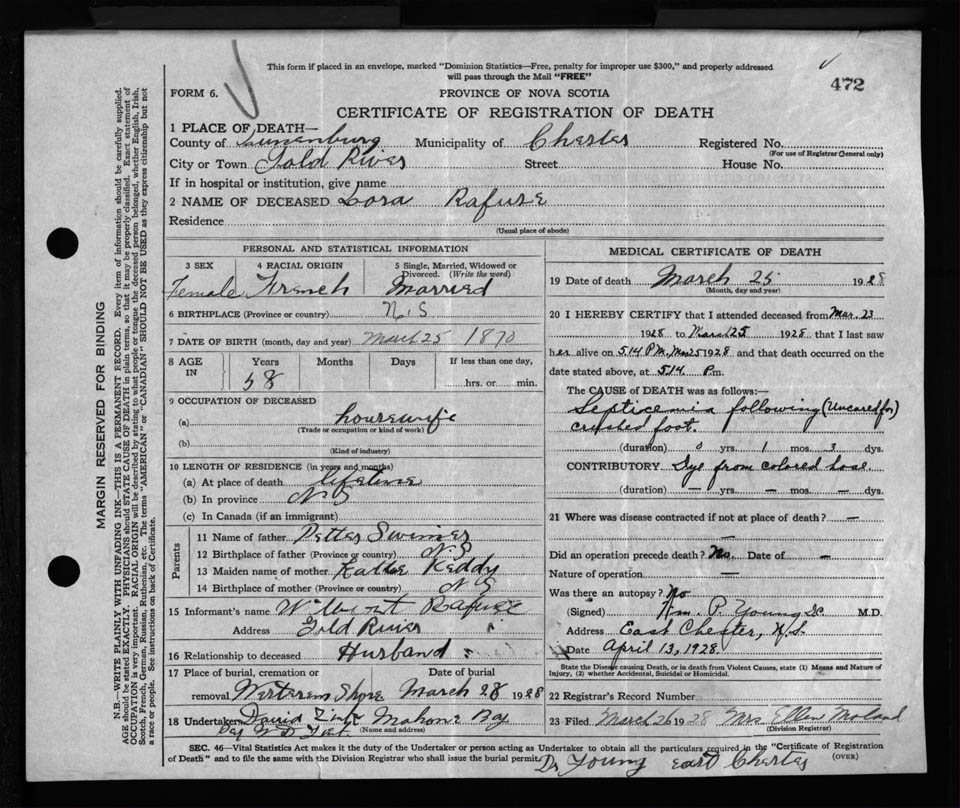 This form if placed in an envelope, marked "Dominion Statistics—Free, penalty for improper use $300," and properly addressed
will pass through the Mail "FREE"
472
FORM 6.
PROVINCE OF NOVA SCOTIA
CERTIFICATE OF REGISTRATION OF DEATH
1 PLACE OF DEATH—
County of Lunenburg Municipality of Chester Registered No.
(For use of Registrar General only)
City or Town Gold River Street House No.
If in hospital or institution, give name
2 NAME OF DECEASED Lora Rafuse
Residence
(Usual place of abode)
PERSONAL AND STATISTICAL INFORMATION
3 SEX 4 RACIAL ORIGIN 5 Single, Married, Widowed or
Divorced. (Write the word)
Female French Married
6 BIRTHPLACE (Province or country) N.S
7 DATE OF BIRTH (month, day and year) March 25 1870
8 AGE Years Months Days If less than one day,
IN 58 hrs. or min.
9 OCCUPATION OF DECEASED
(a) housewife
(Trade or occupation or kind of work)
(b)
(Kind of industry)
10 LENGTH OF RESIDENCE (in years and months)
(a) At place of death lifetime
(b) In province N S
(c) In Canada (if an immigrant)
Parents
11 Name of father Petter Swimer
12 Birthplace of father (Province or country) N.S
13 Maiden name of mother Keddy
14 Birthplace of mother (Province or country) N S
15 Informant's name Rafuse
Address Gold River
16 Relationship to deceased Husband
17 Place of burial, cremation or Date of burial
removal Western Shore March 28 1928
18 Undertaker David Zink Mahone Bay
(Name and address)
MEDICAL CERTIFICATE OF DEATH
19 Date of death March 25 1928
(Month, day and year)
20 I HEREBY CERTIFY that I attended deceased from Mar. 23
1928 to March 25 1928 that I last saw
her alive on 5.14 P.M. Mar 25 1928 and that death occurred on the
date stated above, at 5.14 P.m.
The CAUSE of DEATH was as follows:—
Septicemia following (Uncared for)
crushed foot.
(duration) 0 yrs. 1 mos. 3 dys.
CONTRIBUTORY Dye from colored hose
(duration) — yrs — mos. — dys.
21 Where was disease contracted if not at place of death? —
Did an operation precede death? No. Date of —
Nature of operation —
Was there an autopsy? No
(Signed) Wm. P. Young M.D.
Address East Chester, N.S.
Date April 13, 1928.
State the Disease causing Death, or in death from Violent Causes, state (1) Means and Nature of
Injury, (2) whether Accidental, Suicidal or Homicidal.
22 Registrar's Record Number
23 Filed March 26 1928 Mrs Ellen Moland
(Division Registrar)
SEC. 46—Vital Statistics Act makes it the duty of the Undertaker or person acting as Undertaker to obtain all the particulars required in the "Certificate of Registration
of Death" and to file the same with the Division Registrar who shall issue the burial permit.
(OVER)
Dr Young East Chester
MARGIN RESERVED FOR BINDING
N.B.—WRITE PLAINLY WITH UNFADING INK—THIS IS A PERMANENT RECORD. Every item of information should be carefully supplied.
AGE should be stated EXACTLY. PHYSICIANS should STATE CAUSE OF DEATH in plain terms, so that it may be properly classified. Exact statement of
OCCUPATION is very important. RACIAL ORIGIN will be described by stating to what people or tongue the deceased person belonged, whether English, Irish,
Scotch, French, German, Russian, Ruthenian, etc. The terms "AMERICAN" or "CANADIAN" SHOULD NOT BE USED as they express citizenship but not
a race or people. See instructions on back of Certificate.